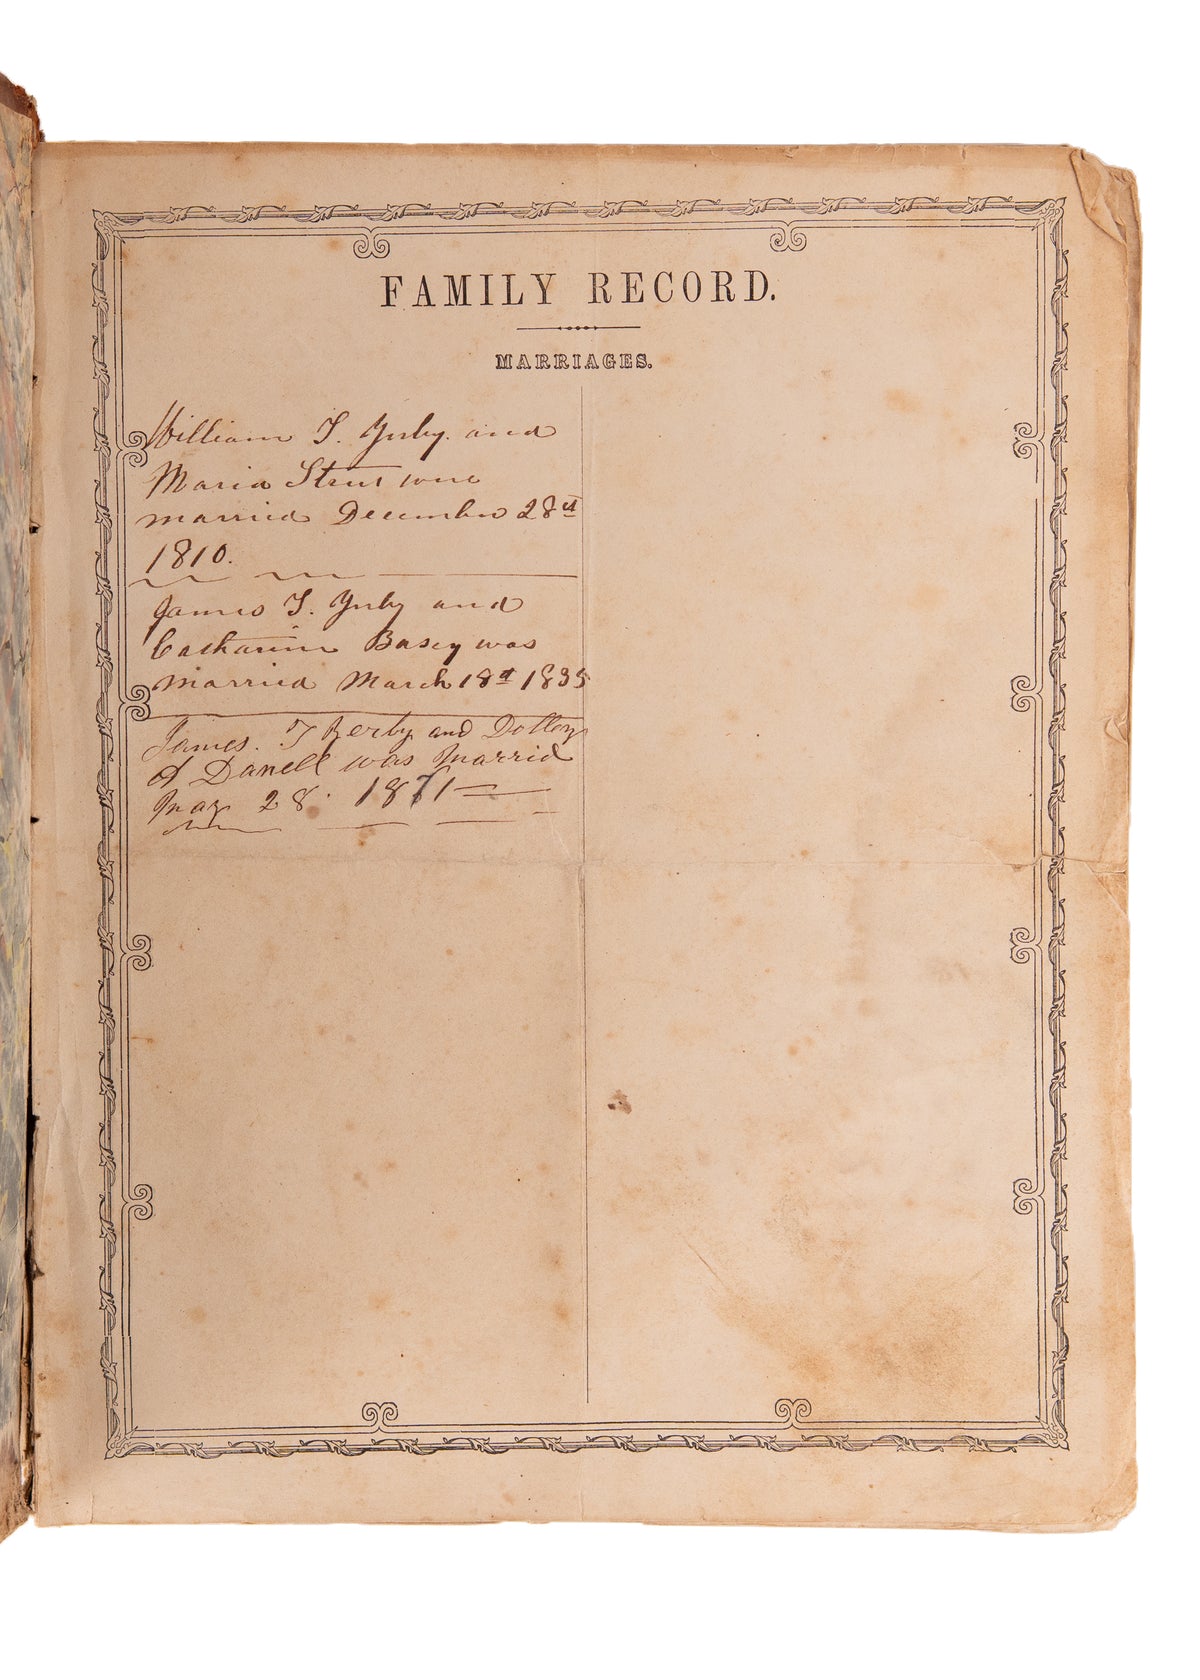 FAMILY RECORD.
MARRIAGES.
William T. Yerby. and
Maria were
married December 28st
1810.
James T. Yerby and
Catharine Basey was
married March 18st 1835
James. T Yerby and
A Danell was Married
May 28. 1871